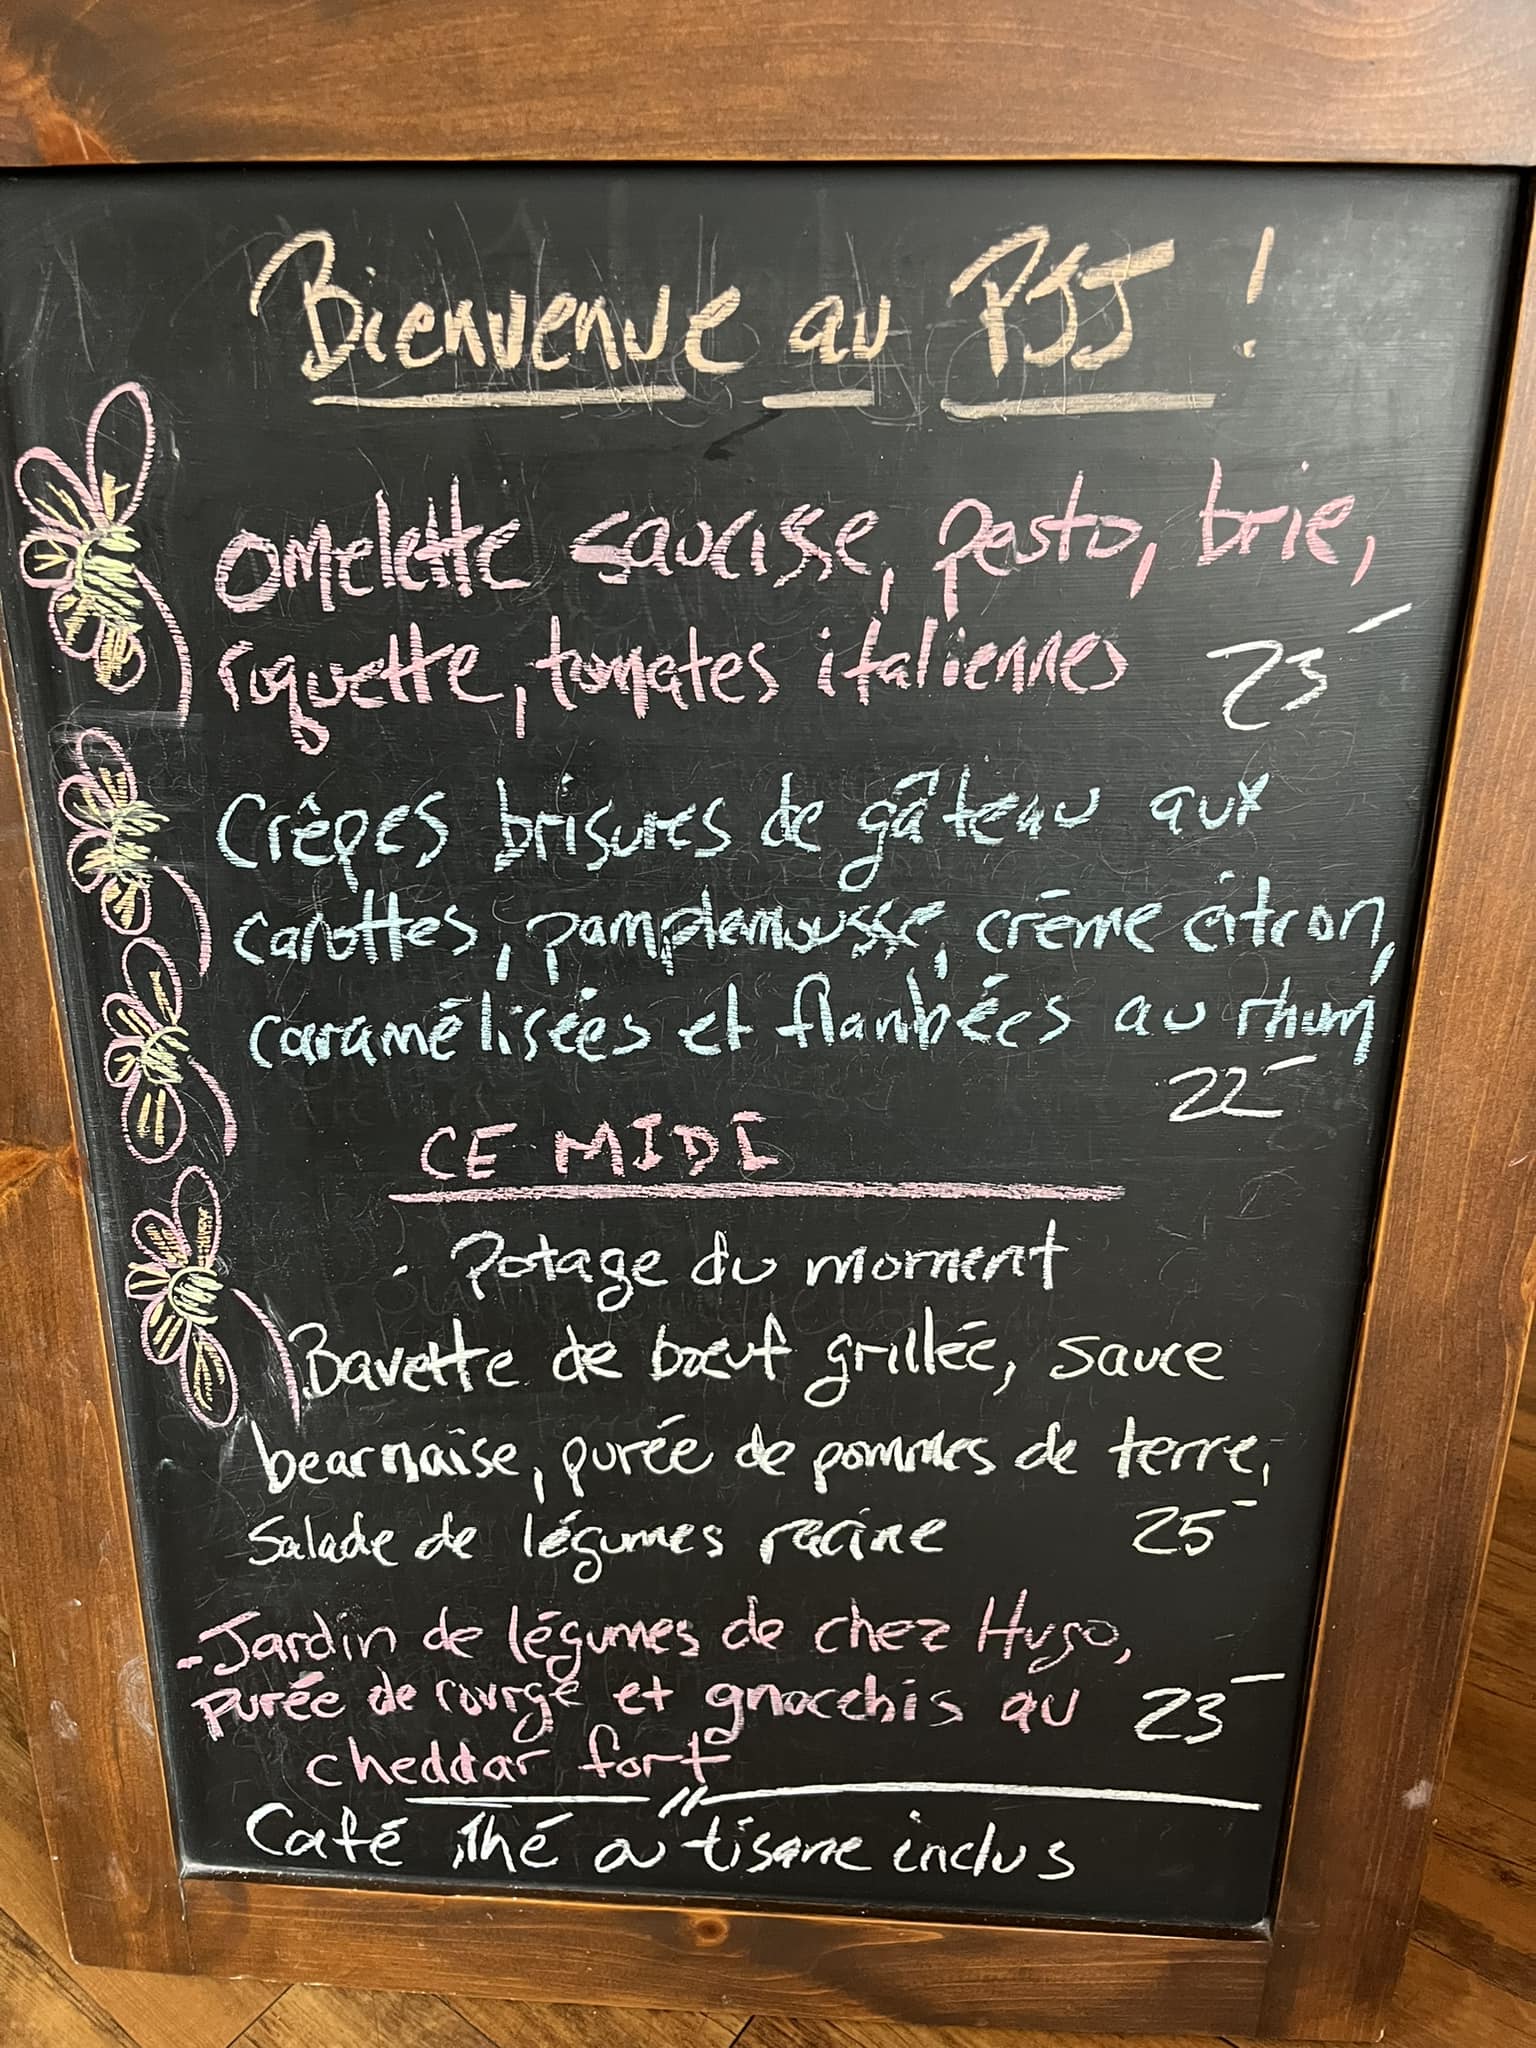 Bienvenue au PJJ !
Omelette saucisse, pesto, brie,
roquette, tomates italiennes 23-
Crêpes brisures de gâteau aux
carottes, pamplemousse, crème citron,
caramélisées et flambées au rhum
22-
CE MIDI
. Potage du moment
Bavette de bœuf grillée, sauce
bearnaise, purée de pommes de terre,
Salade de légumes racine 25-
- Jardin de légumes de chez Hugo,
purée de courge et gnocchis au 23-
cheddar fort
Café, thé ou tisane inclus